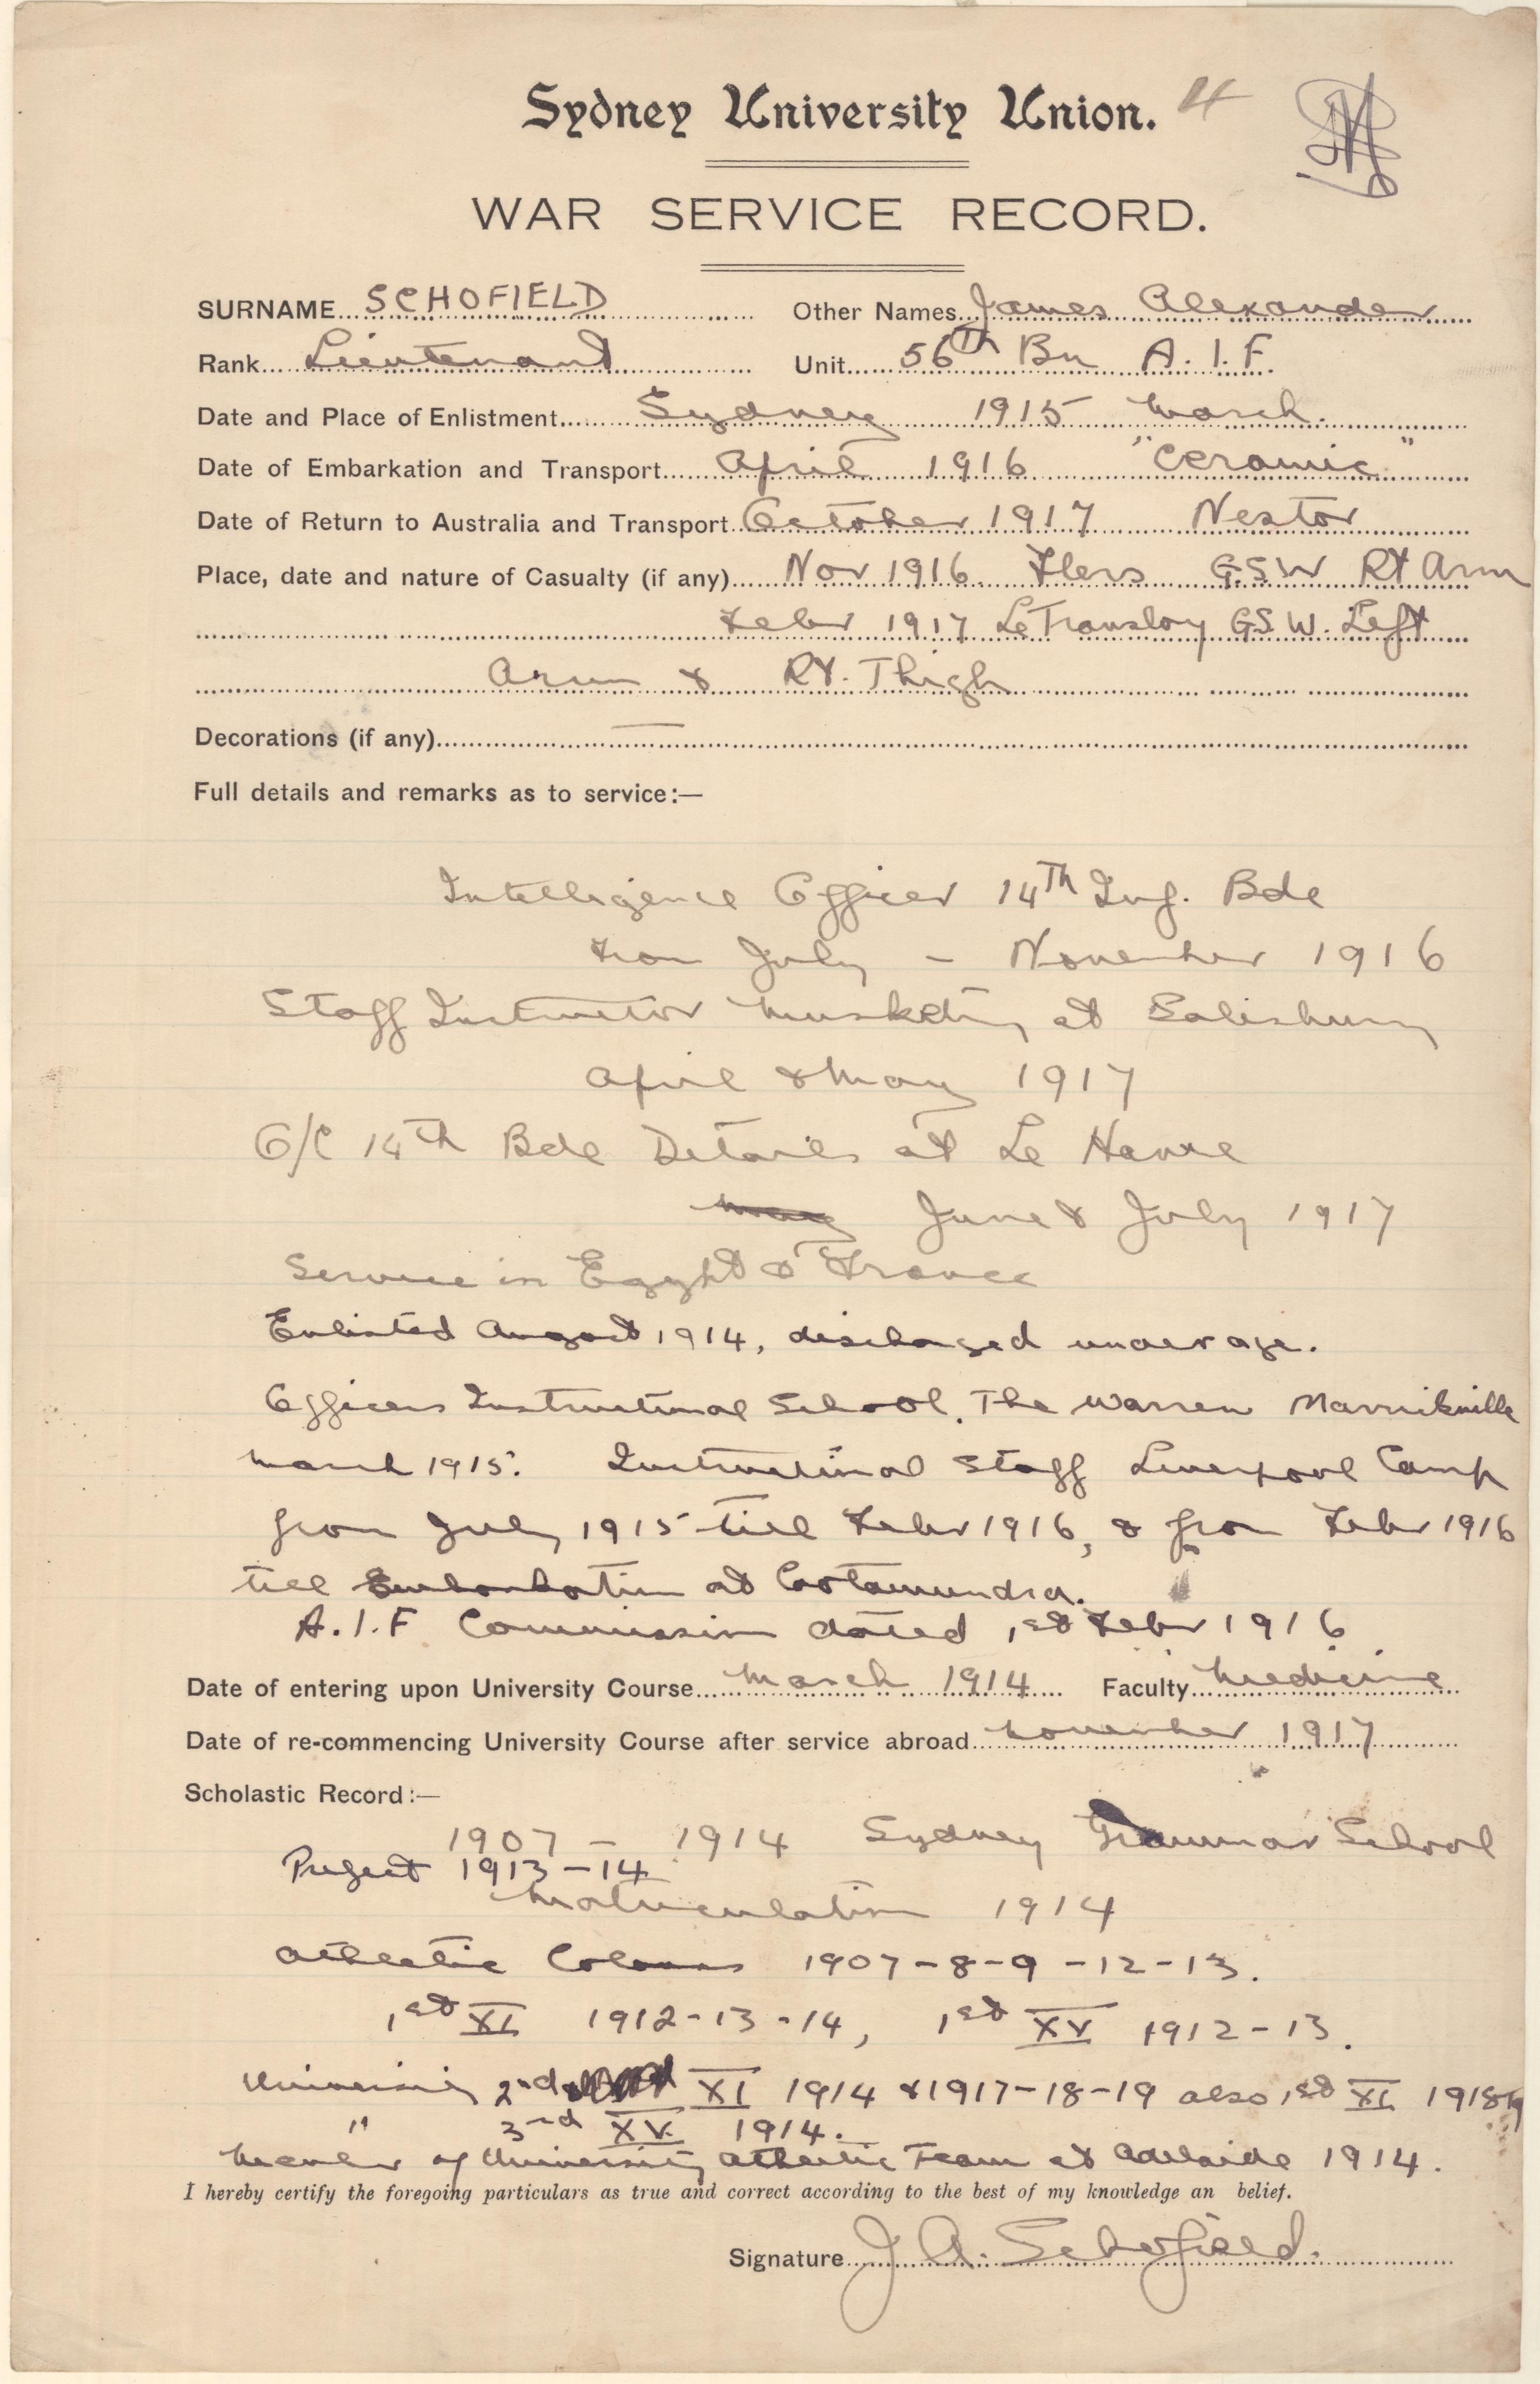 Sydney University Union. 4
WAR SERVICE RECORD.
SURNAME SCHOFIELD Other Names James Alexander
Rank Lieutenant Unit 56th Bn A.I.F.
Date and Place of Enlistment Sydney 1915 March.
Date of Embarkation and Transport April 1916 "Ceramic"
Date of Return to Australia and Transport October 1917 Nestor
Place, date and nature of Casualty (if any) Nov 1916 Flers G.S.W Rt Arm
Febr 1917 Le Transloy G.S.W. Left
Arm & Rt. Thigh
Decorations (if any) —
Full details and remarks as to service:—
Intelligence Officer 14th Inf. Bde
from July - November 1916
Staff Instructor Musketry at Salisbury
April & May 1917
O/C 14th Bde Details at Le Havre
May June & July 1917
Service in Egypt & France
Enlisted August 1914, discharged under age.
Officers Instructional School. The Warren Marrickville
March 1915. Instructional Staff Liverpool Camp
from July 1915 till Febr 1916, & from Febr 1916
till Embarkation at Cootamundra.
A.I.F Commission dated 1st Febr 1916
Date of entering upon University Course March 1914 Faculty Medicine
Date of re-commencing University Course after service abroad November 1917
Scholastic Record:—
1907 - 1914 Sydney Grammar School
Prefect 1913-14
Matriculation 1914
Athletic Colours 1907-8-9-12-13.
1st XI 1912-13-14, 1st XV 1912-13.
University 2nd XI 1914 & 1917-18-19 also 1st XI 1918-19
" 3rd XV. 1914.
Member of University Athletic Team at Adelaide 1914.
I hereby certify the foregoing particulars as true and correct according to the best of my knowledge an belief.
Signature J. A. Schofield.